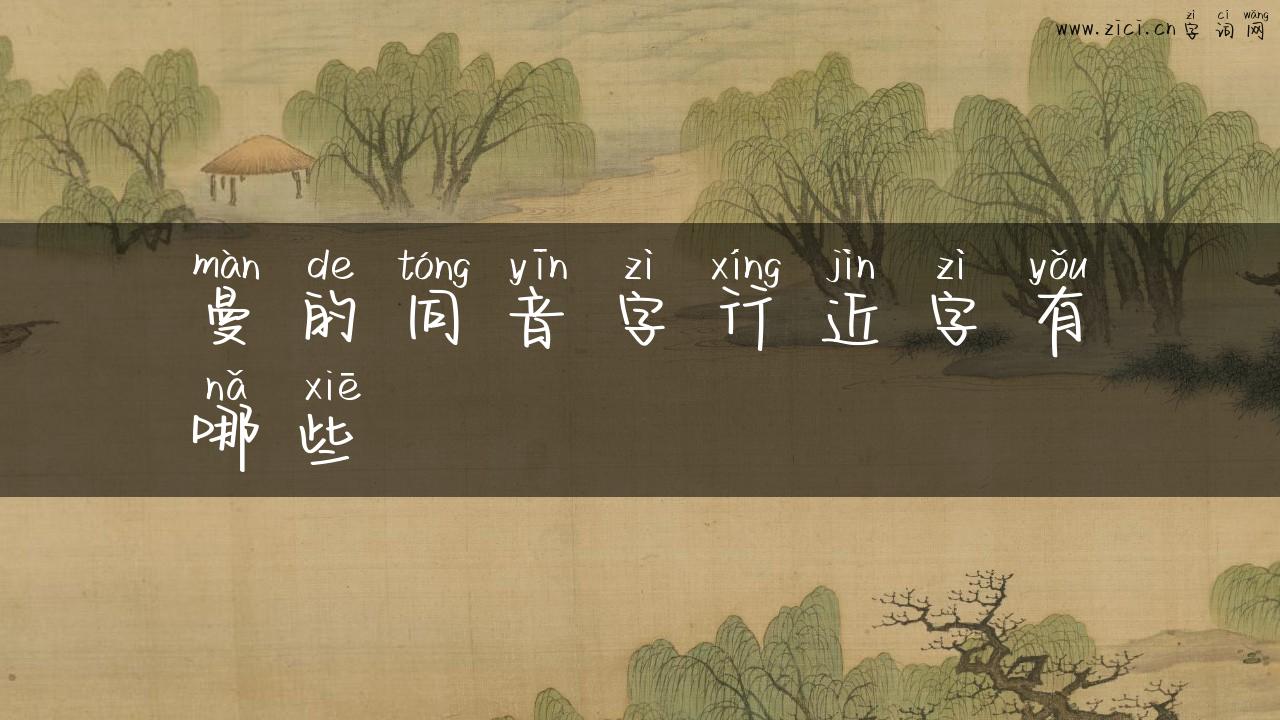 zì cí wǎng
www.zici.cn 字词网
màn de tóng yīn zì xíng jìn zì yǒu
曼的同音字行近字有
nǎ xiē
哪些